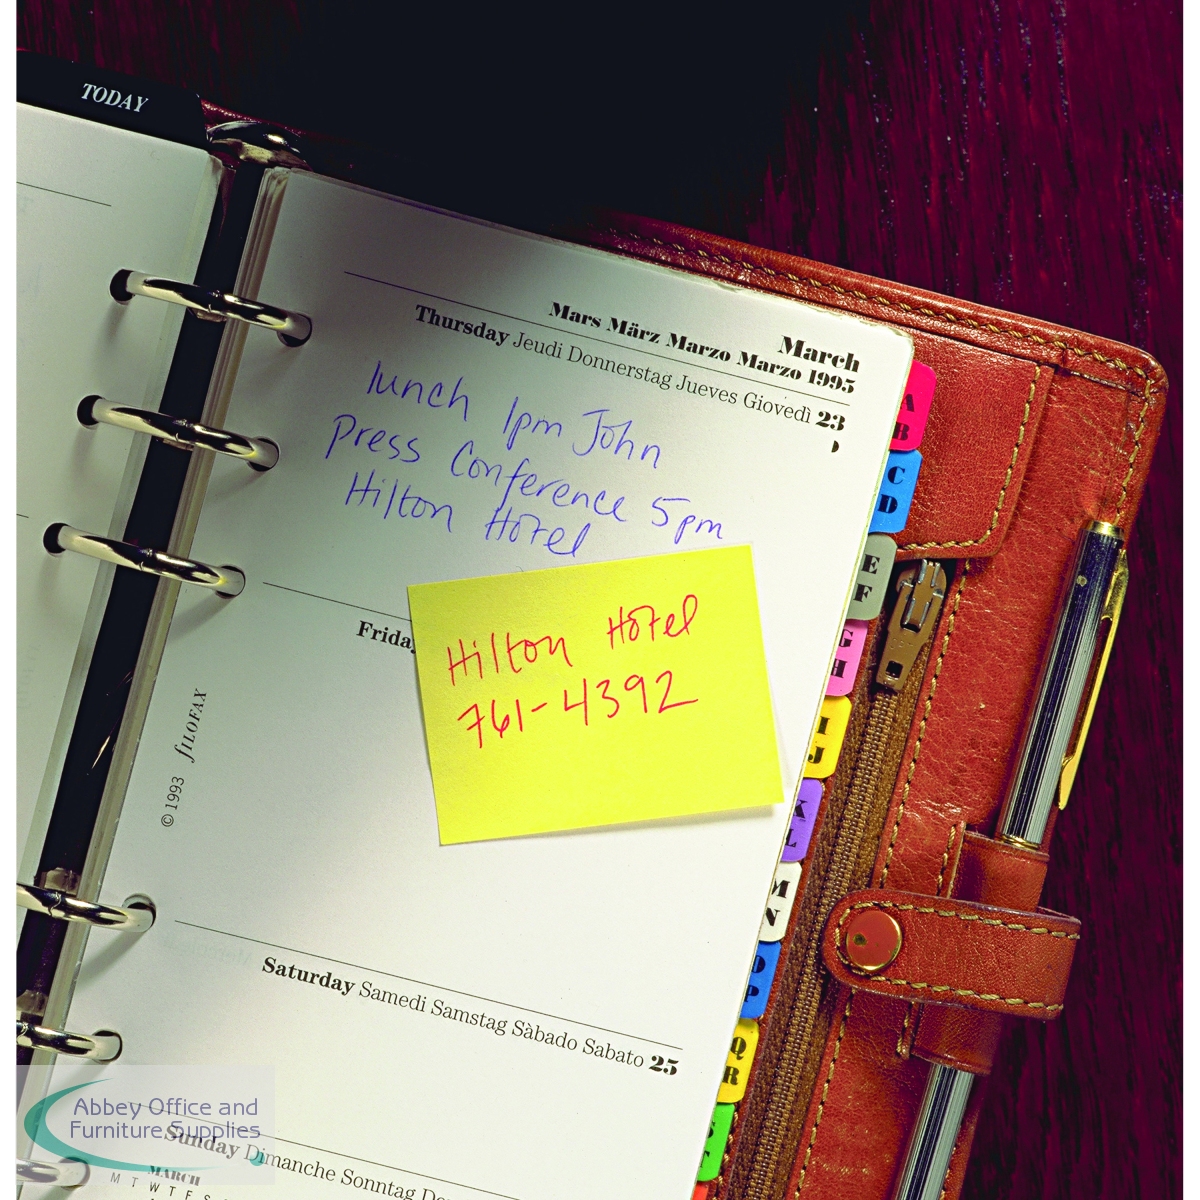 TODAY
March
Mars März Marzo Marzo 1995
Thursday Jeudi Donnerstag Jueves Giovedì 23
lunch 1pm John
Press Conference 5pm
Hilton Hotel
Friday
Hilton Hotel
761-4392
© 1993 fILOFAX
Saturday Samedi Samstag Sàbado Sabato 25
Sunday Dimanche Sonntag
MARCH
M T W T F S
A B
C D
E F
G H
I J
K L
M N
O P
Q R
Abbey Office and
Furniture Supplies